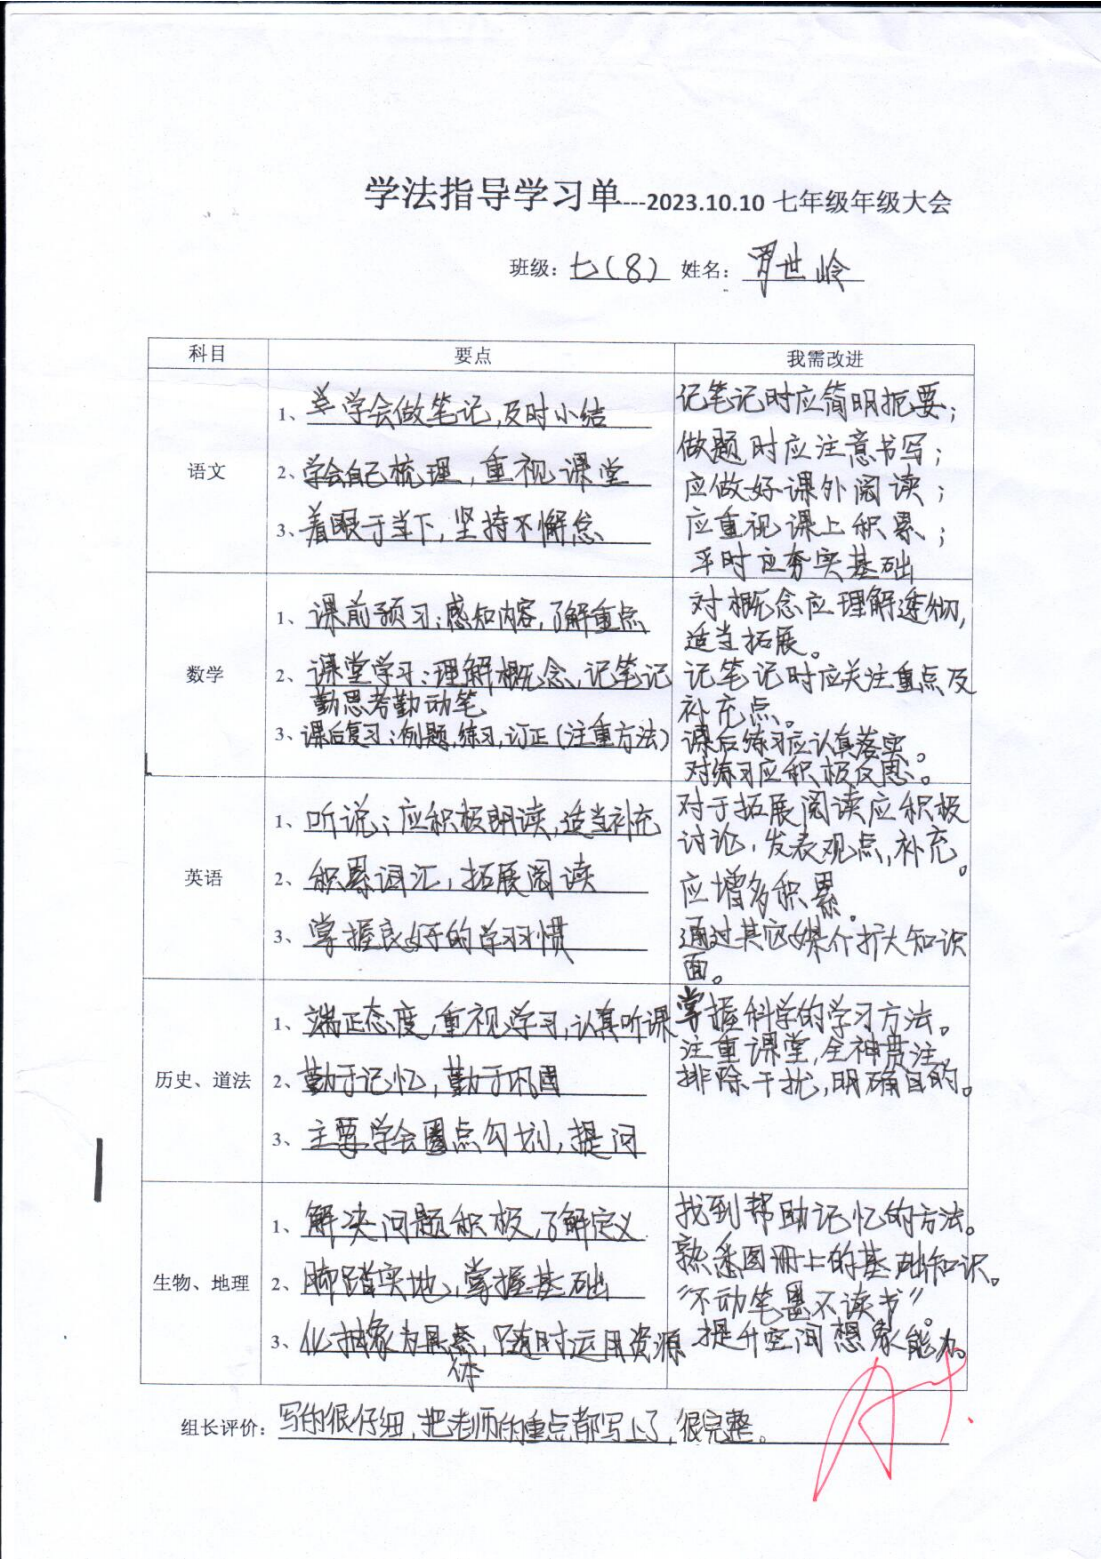 学法指导学习单---2023.10.10 七年级年级大会
班级：七(8) 姓名：世岭
科目 要点 我需改进
语文
1、学会做笔记,及时小结
2、学会自己梳理，重视课堂
3、着眼于当下,坚持不懈怠
记笔记时应简明扼要；
做题时应注意书写；
应做好课外阅读；
应重视课上积累；
平时应夯实基础
数学
1、课前预习:感知内容,了解重点
2、课堂学习:理解概念、记笔记
勤思考勤动笔
3、课后复习:例题,练习,订正(注重方法)
对概念应理解透彻,
适当拓展。
记笔记时应关注重点及
补充点。
课后练习应认真落实。
对练习应积极反思。
英语
1、听说;应积极朗读,适当补充
2、积累词汇,拓展阅读
3、掌握良好的学习习惯
对于拓展阅读应积极
讨论,发表观点,补充。
应增多积累。
通过其它媒介扩大知识
面。
历史、道法
1、端正态度,重视学习,认真听课
2、勤于记忆,勤于巩固
3、主要学会圈点勾划,提问
掌握科学的学习方法。
注重课堂,全神贯注,
排除干扰,明确目的。
生物、地理
1、解决问题积极,了解定义
2、脚踏实地,掌握基础
3、化抽象为具体,随时运用资源
找到帮助记忆的方法。
熟悉图册上的基础知识。
“不动笔墨不读书”。
提升空间想象能力。
组长评价：写的很仔细,把老师的重点都写上了,很完整。
A+